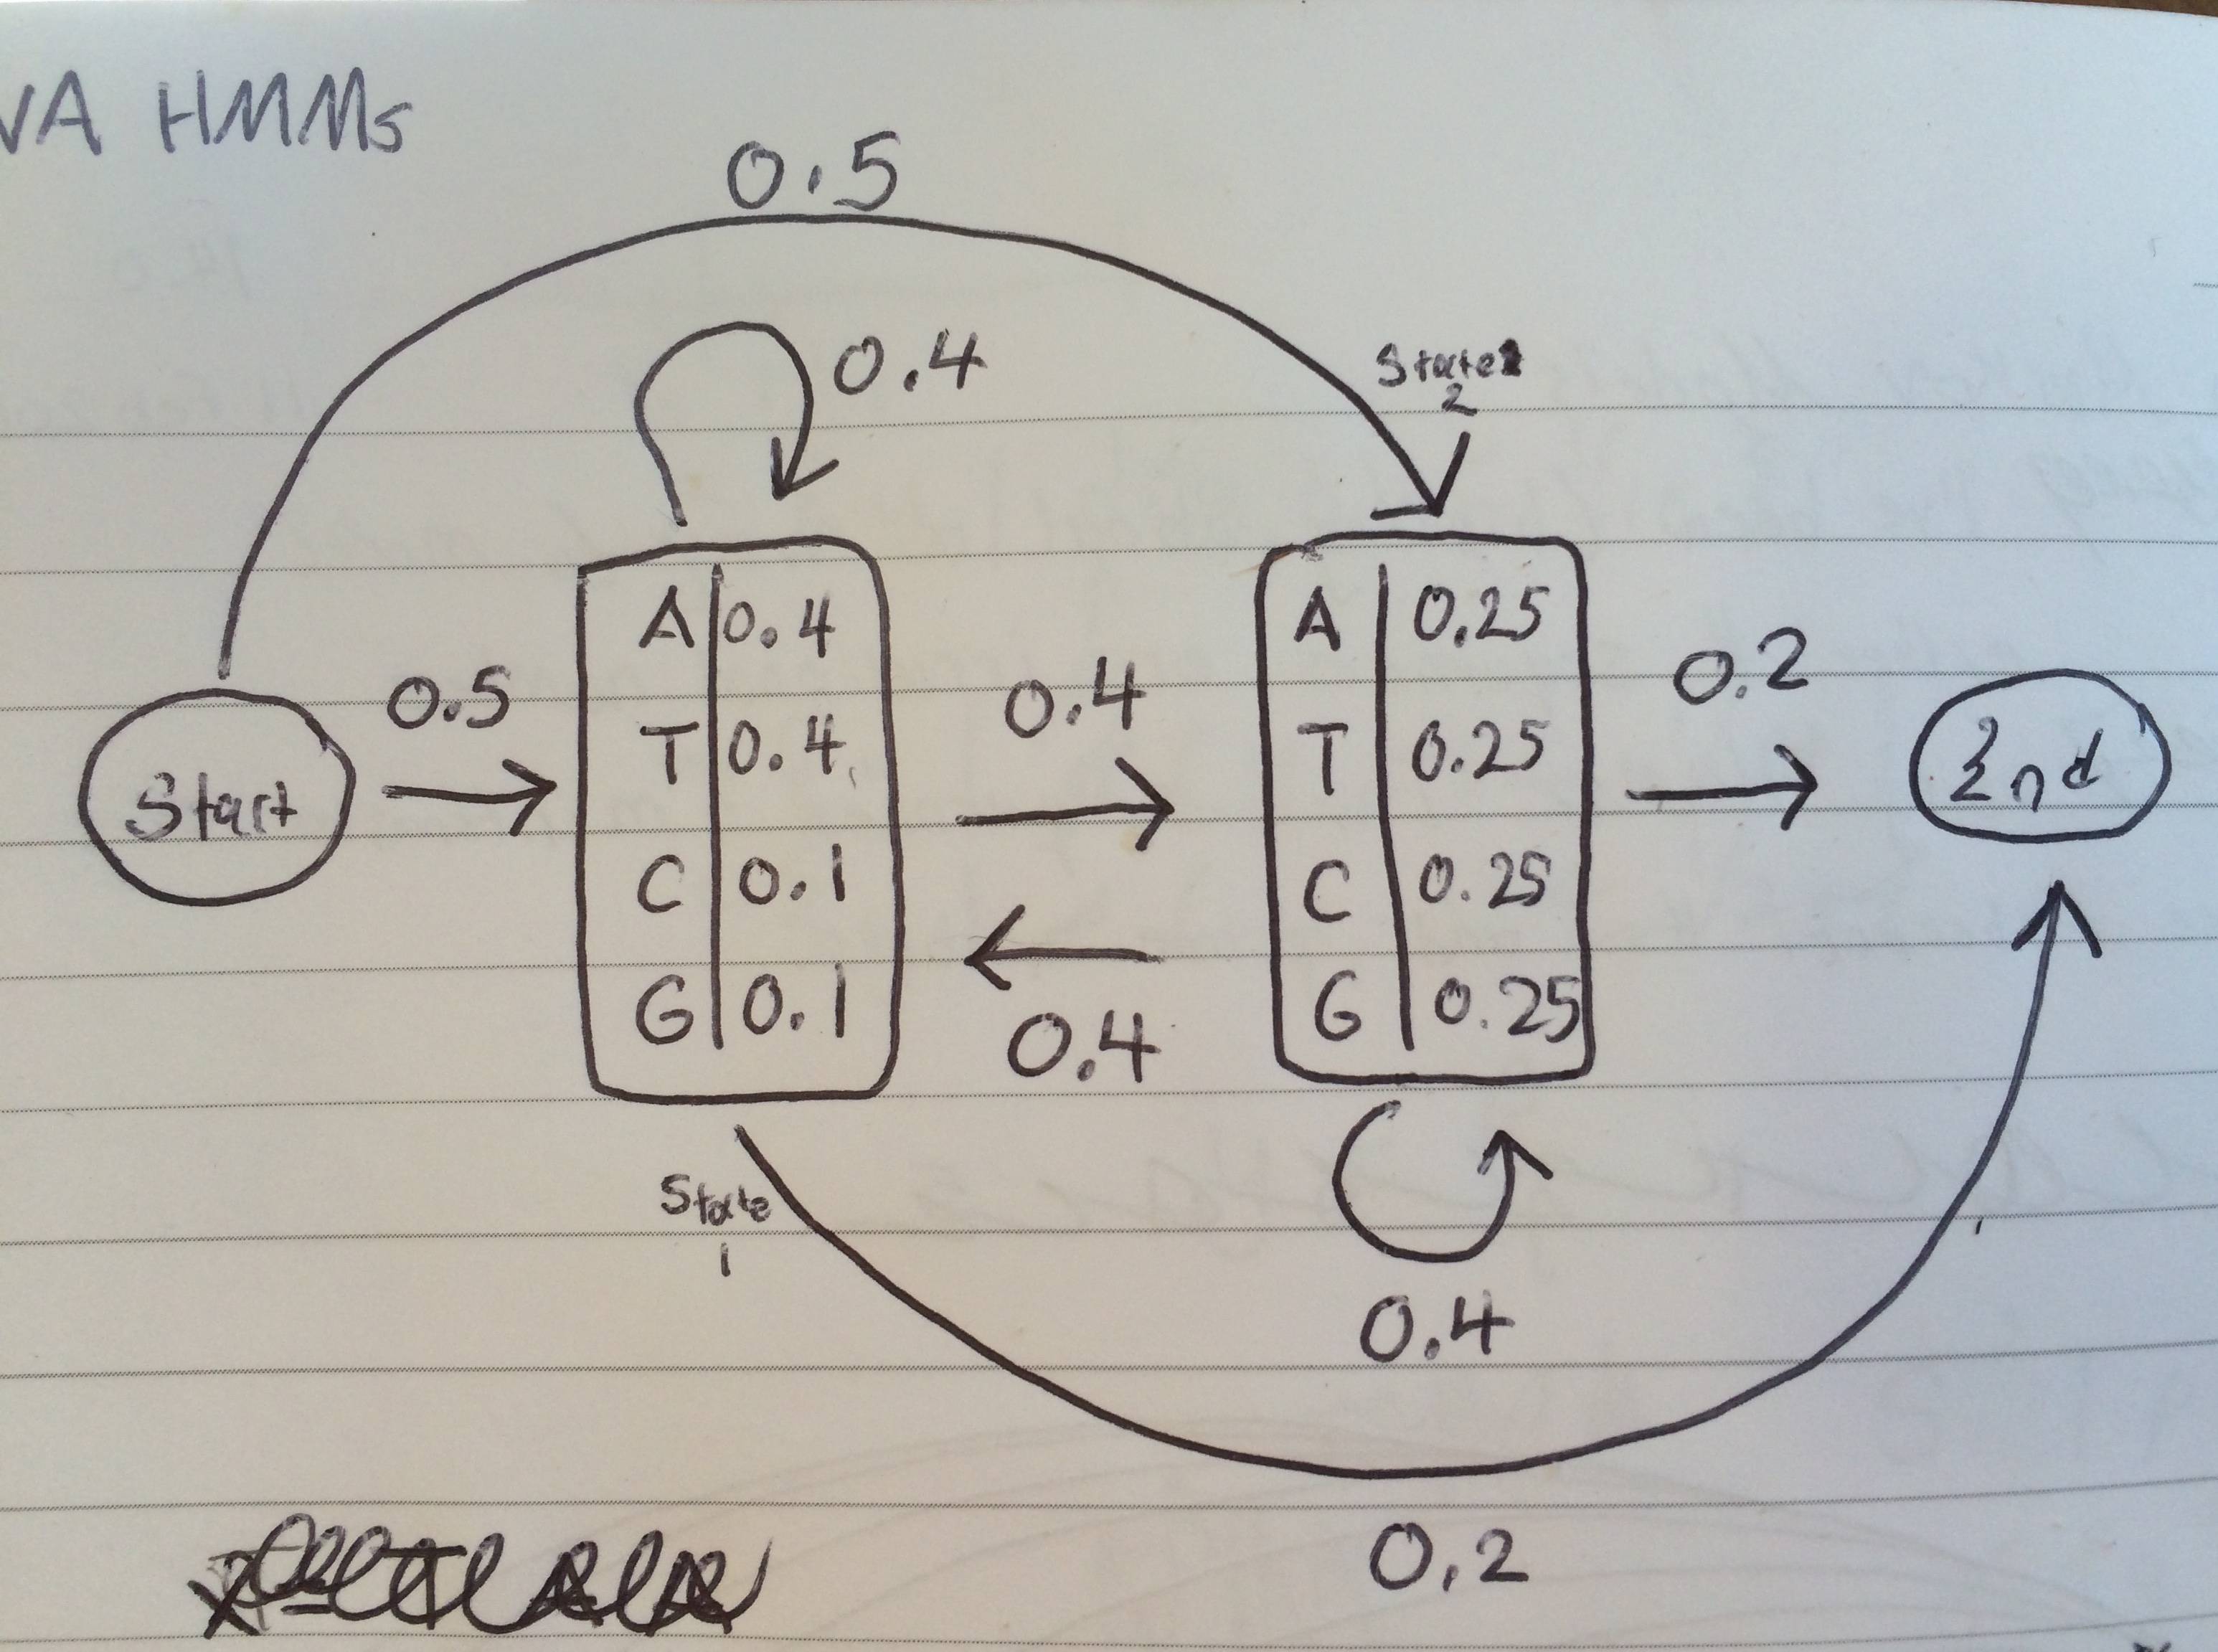 NA HMMs
0.5
0.4
State 2
A 0.4
T 0.4
C 0.1
G 0.1
A 0.25
T 0.25
C 0.25
G 0.25
0.5
0.4
0.2
Start
End
0.4
State
1
0.4
0.2